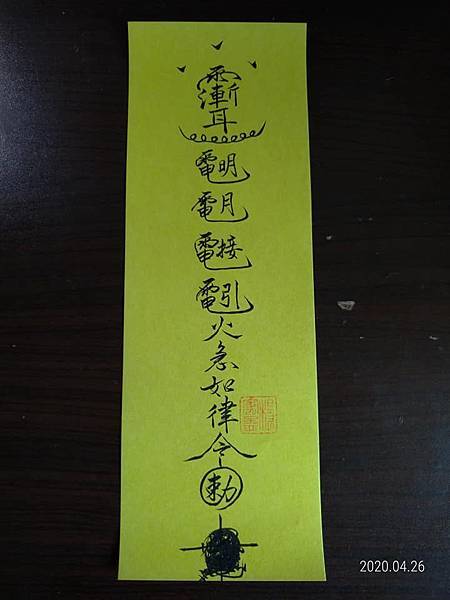 雨漸耳電明電月電接電引火急如律令勅
2020.04.26